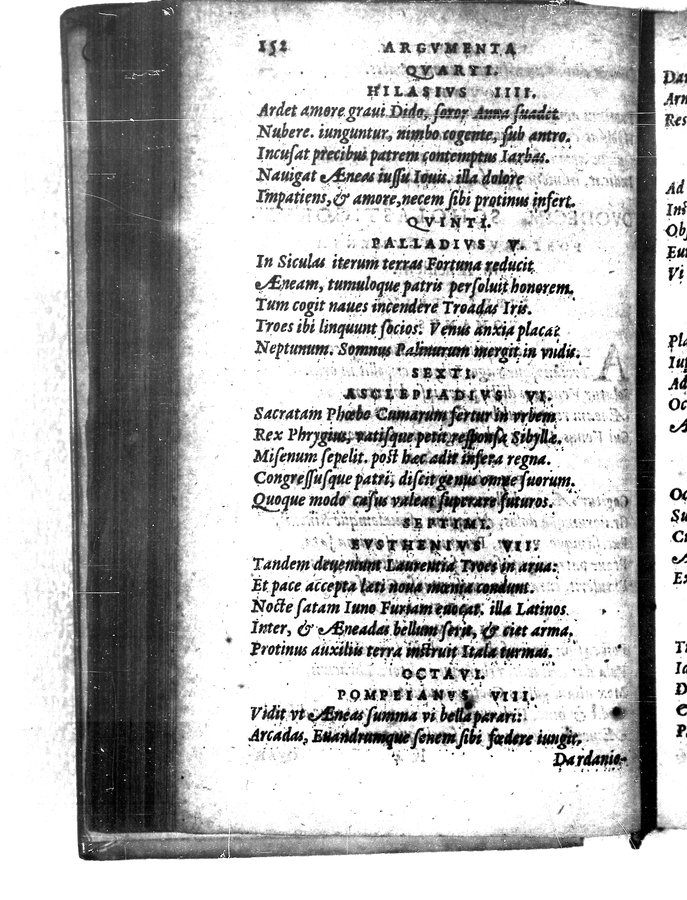 152 ARGVMENTA
QVARTI.
HILASIVS IIII.
Ardet amore graui Dido, soror Anna suadet
Nubere. iunguntur, nimbo cogente, sub antro.
Incusat precibus patrem contemptus Iarbas.
Nauigat Æneas iussu Iouis. illa dolore
Impatiens, & amore, necem sibi protinus infert.
QVINTI.
PALLADIVS V.
In Siculas iterum terras Fortuna reducit
Æneam, tumuloque patris persoluit honorem.
Tum cogit naues incendere Troadas Iris.
Troes ibi linquunt socios. Venus anxia placat
Neptunum. Somnus Palinurum mergit in vndis.
SEXTI.
ASCLEPIADIVS VI.
Sacratam Phœbo Cumarum fertur in vrbem
Rex Phrygius, vatisque petit responsa Sibyllæ.
Misenum sepelit. post hæc adit infera regna.
Congressusque patri, discit genus omne suorum.
Quoque modo casus valeat superare futuros.
SEPTIMI.
EVSTHENIVS VII.
Tandem deueniunt Laurentia Troes in arua:
Et pace accepta læti noua mœnia condunt.
Nocte satam Iuno Furiam euocat. illa Latinos
Inter, & Æneadas bellum serit, & ciet arma.
Protinus auxilijs terra instruit Itala turmas.
OCTAVI.
POMPEIANVS VIII.
Vidit vt Æneas summa vi bella parari:
Arcadas, Euandrumque senem sibi fœdere iungit.
Dardanio-